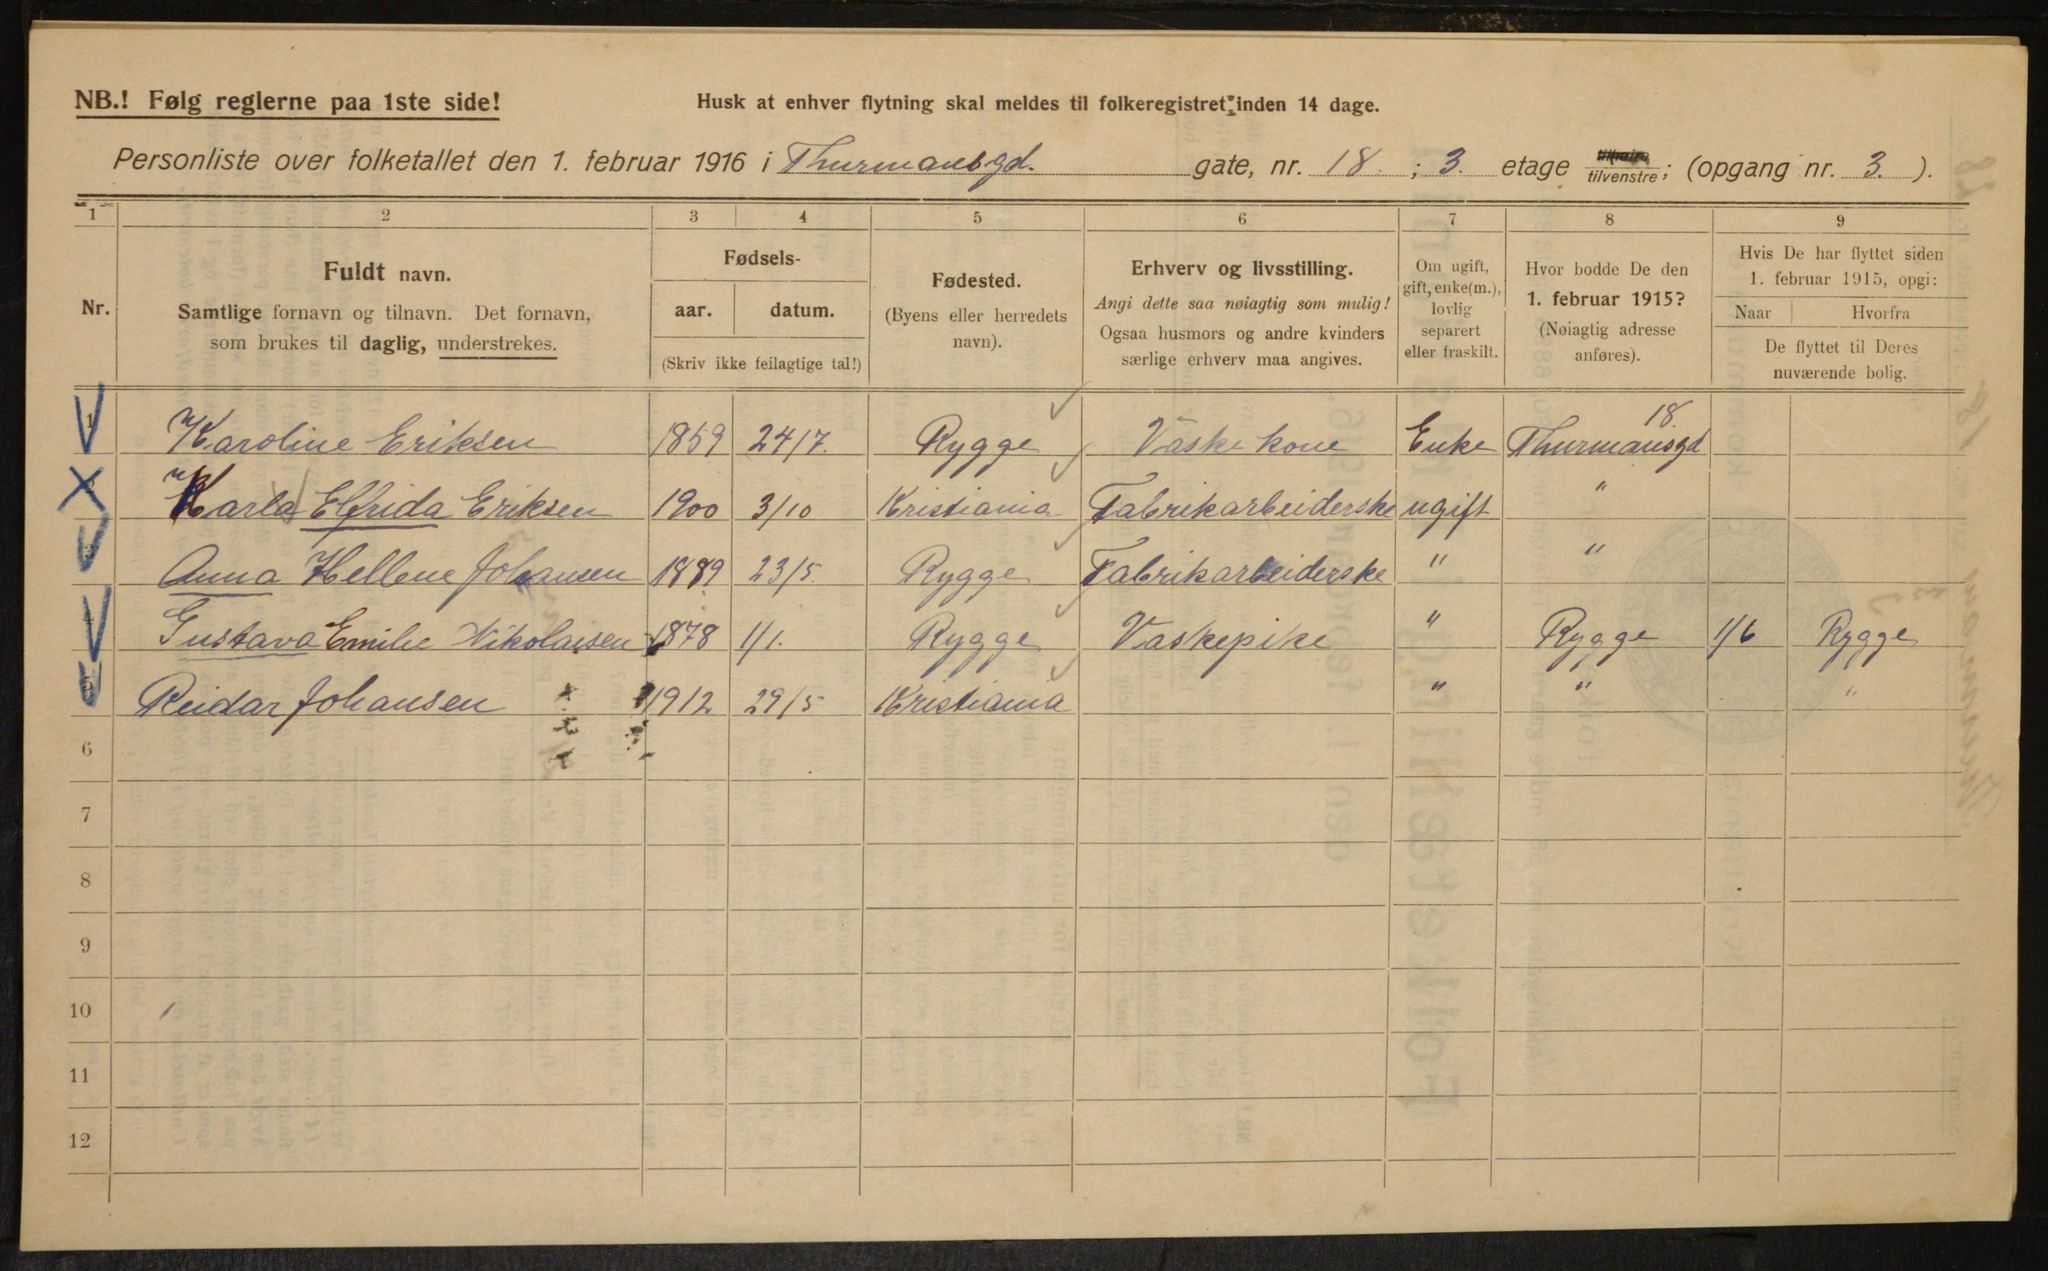 NB.! Følg reglerne paa 1ste side!
Husk at enhver flytning skal meldes til folkeregistret inden 14 dage.
Personliste over folketallet den 1. februar 1916 i Thurmansgd. gate, nr. 18. ; 3. etage tilvenstre; (opgang nr. 3. ).
1 2 3 4 5 6 7 8 9
Nr.
Fuldt navn.
Samtlige fornavn og tilnavn. Det fornavn,
som brukes til daglig, understrekes.
Fødsels-
aar. datum.
(Skriv ikke feilagtige tal!)
Fødested.
(Byens eller herredets
navn).
Erhverv og livsstilling.
Angi dette saa nøiagtig som mulig!
Ogsaa husmors og andre kvinders
særlige erhverv maa angives.
Om ugift,
gift, enke(m.),
lovlig
separert
eller fraskilt.
Hvor bodde De den
1. februar 1915?
(Nøiagtig adresse
anføres).
Hvis De har flyttet siden
1. februar 1915, opgi:
Naar Hvorfra
De flyttet til Deres
nuværende bolig.
1 Karoline Eriksen 1859 24/7. Rygge Vaske kone Enke Thurmansgd 18.
2 Karla Elfrida Eriksen 1900 3/10 Kristiania Fabrikarbeiderske ugift "
3 Anna Hellene Johansen 1889 23/5. Rygge Fabrikarbeiderske " "
4 Gustava Emilie Nikolaisen 1878 1/1. Rygge Vaskepike " Rygge 1/6 Rygge
5 Reidar Johansen 1912 29/5 Kristiania " " "
6
7
8
9
10
11
12